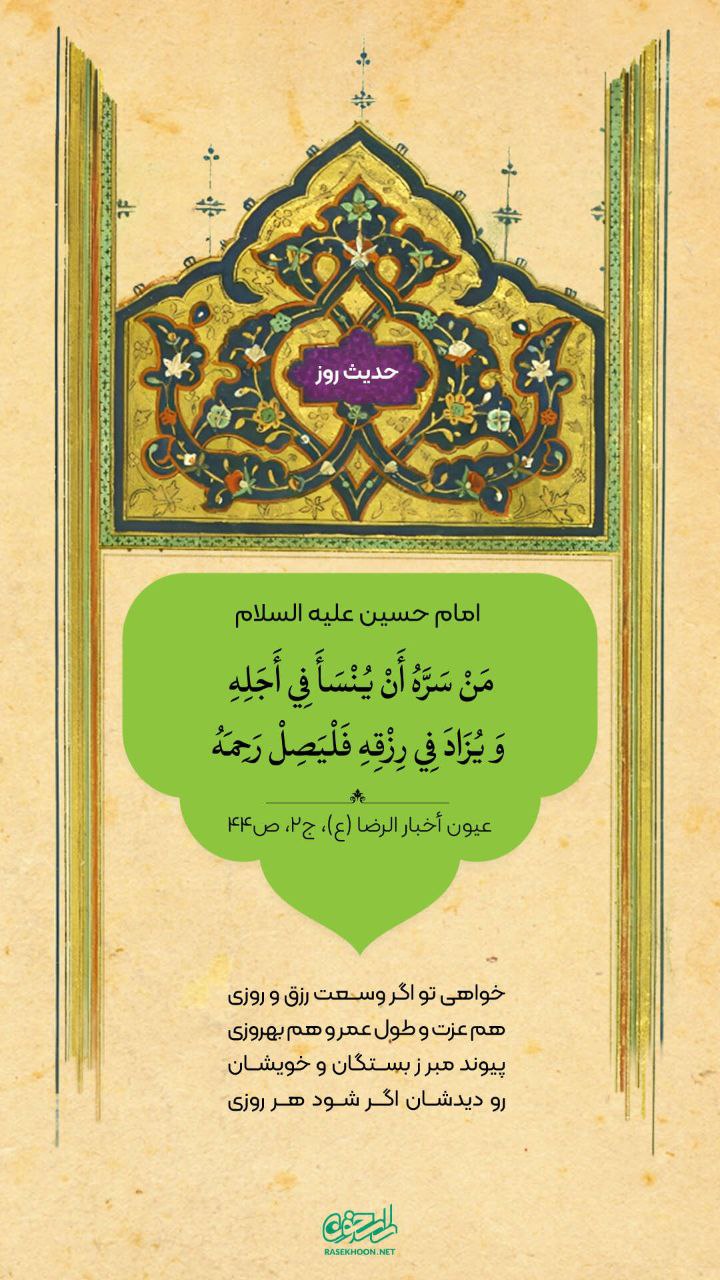 حدیث روز
امام حسین علیه السلام
مَنْ سَرَّهُ أَنْ يُنْسَأَ فِي أَجَلِهِ
وَ يُزَادَ فِي رِزْقِهِ فَلْيَصِلْ رَحِمَهُ
عیون أخبار الرضا (ع)، ج۲، ص۴۴
خواهی تو اگر وسـعت رزق و روزی
هم عزت و طول عمر و هم بهروزی
پیوند مبر ز بسـتگان و خویشـان
رو دیدشـان اگـر شـود هـر روزی
راسخون
RASEKHOON.NET